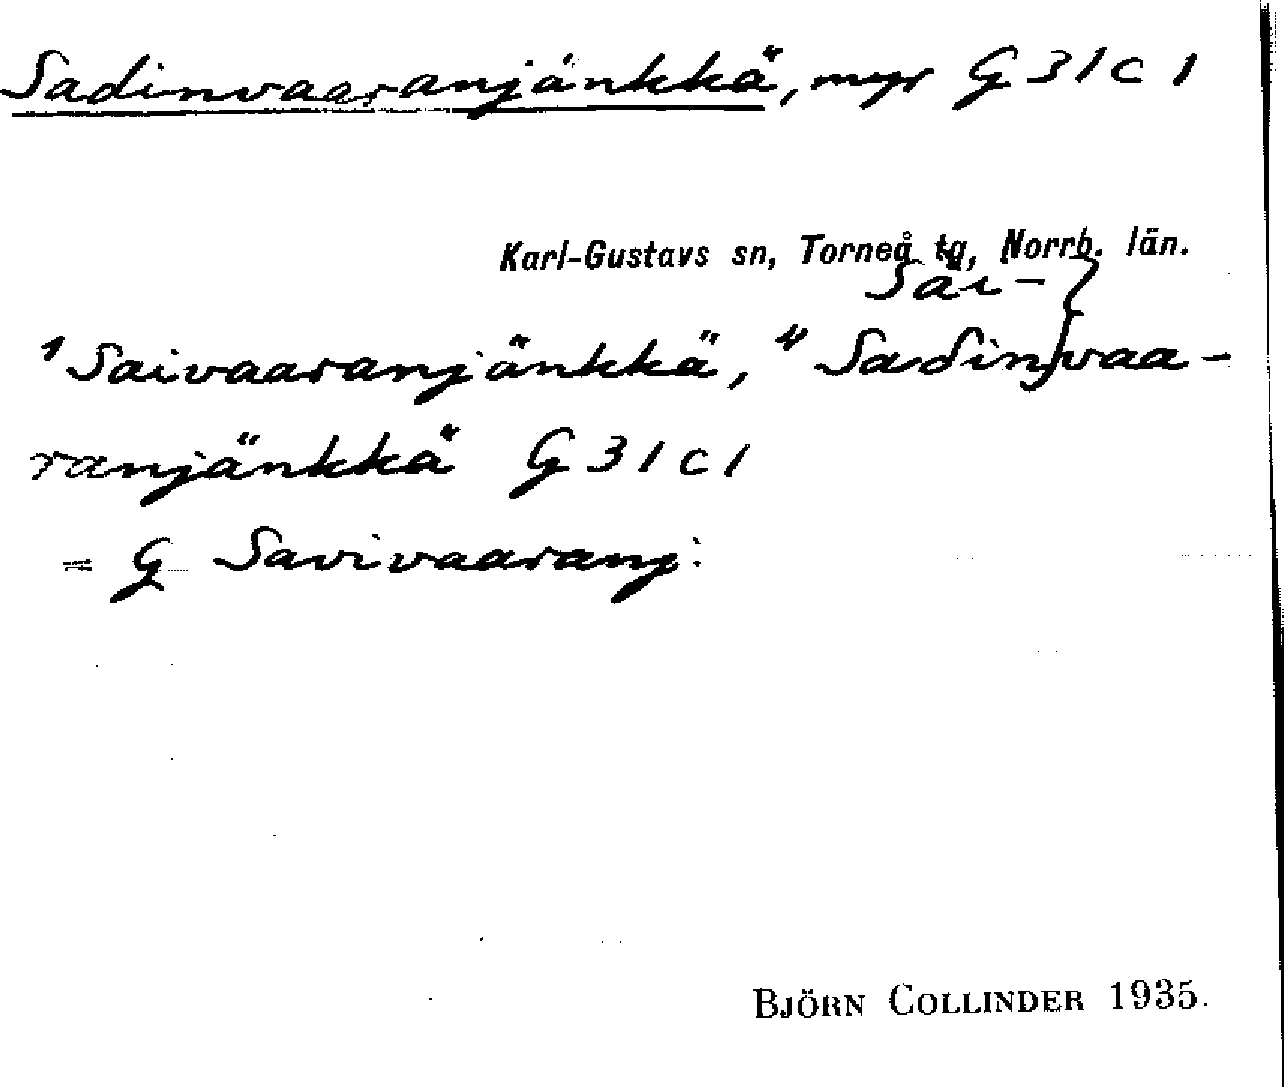 Sadinvaaranjänkkä, myr G 31 c 1
Karl-Gustavs sn, Torneå tg, Norrb. län.
Sai-}
1 Saivaaranjänkkä, 4 Sadin}vaa-
ranjänkkä G 31 c 1
= G Savivaaranj:
BJÖRN COLLINDER 1935.